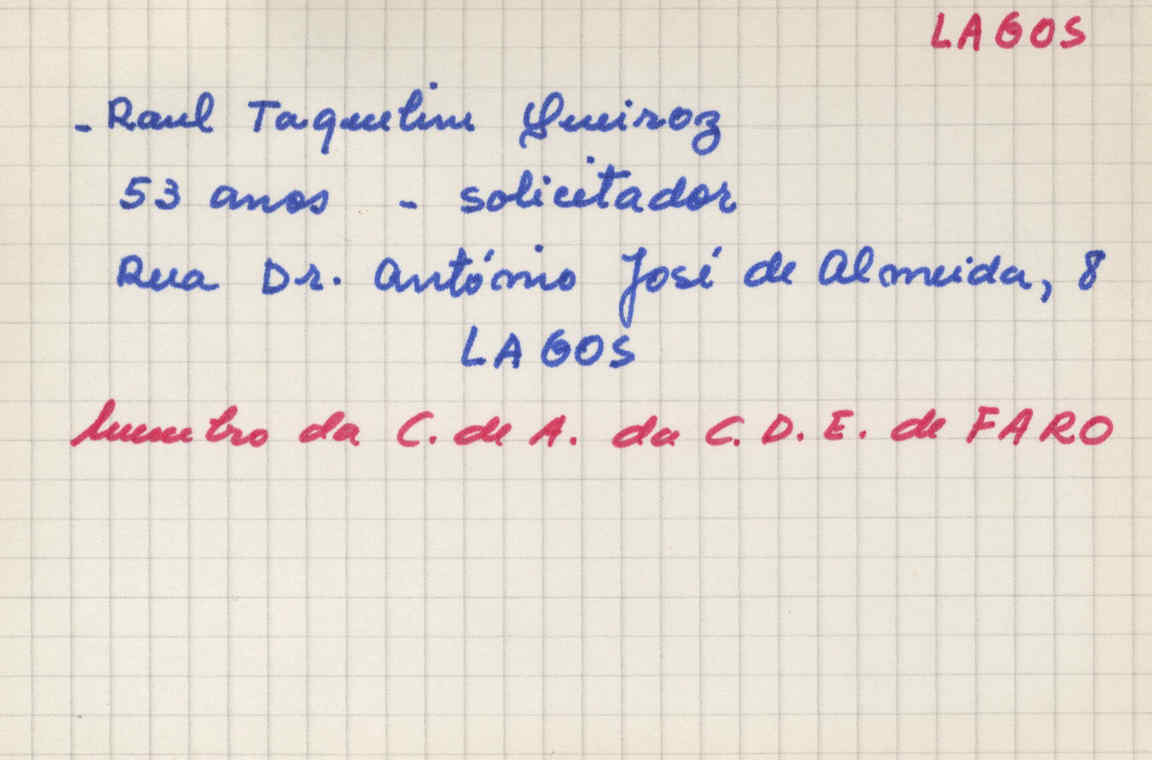 LAGOS
- Raul Taquelim Queiroz
53 anos - solicitador
Rua Dr. António José de Almeida, 8
LAGOS
Membro da C. de A. da C. D. E. de FARO